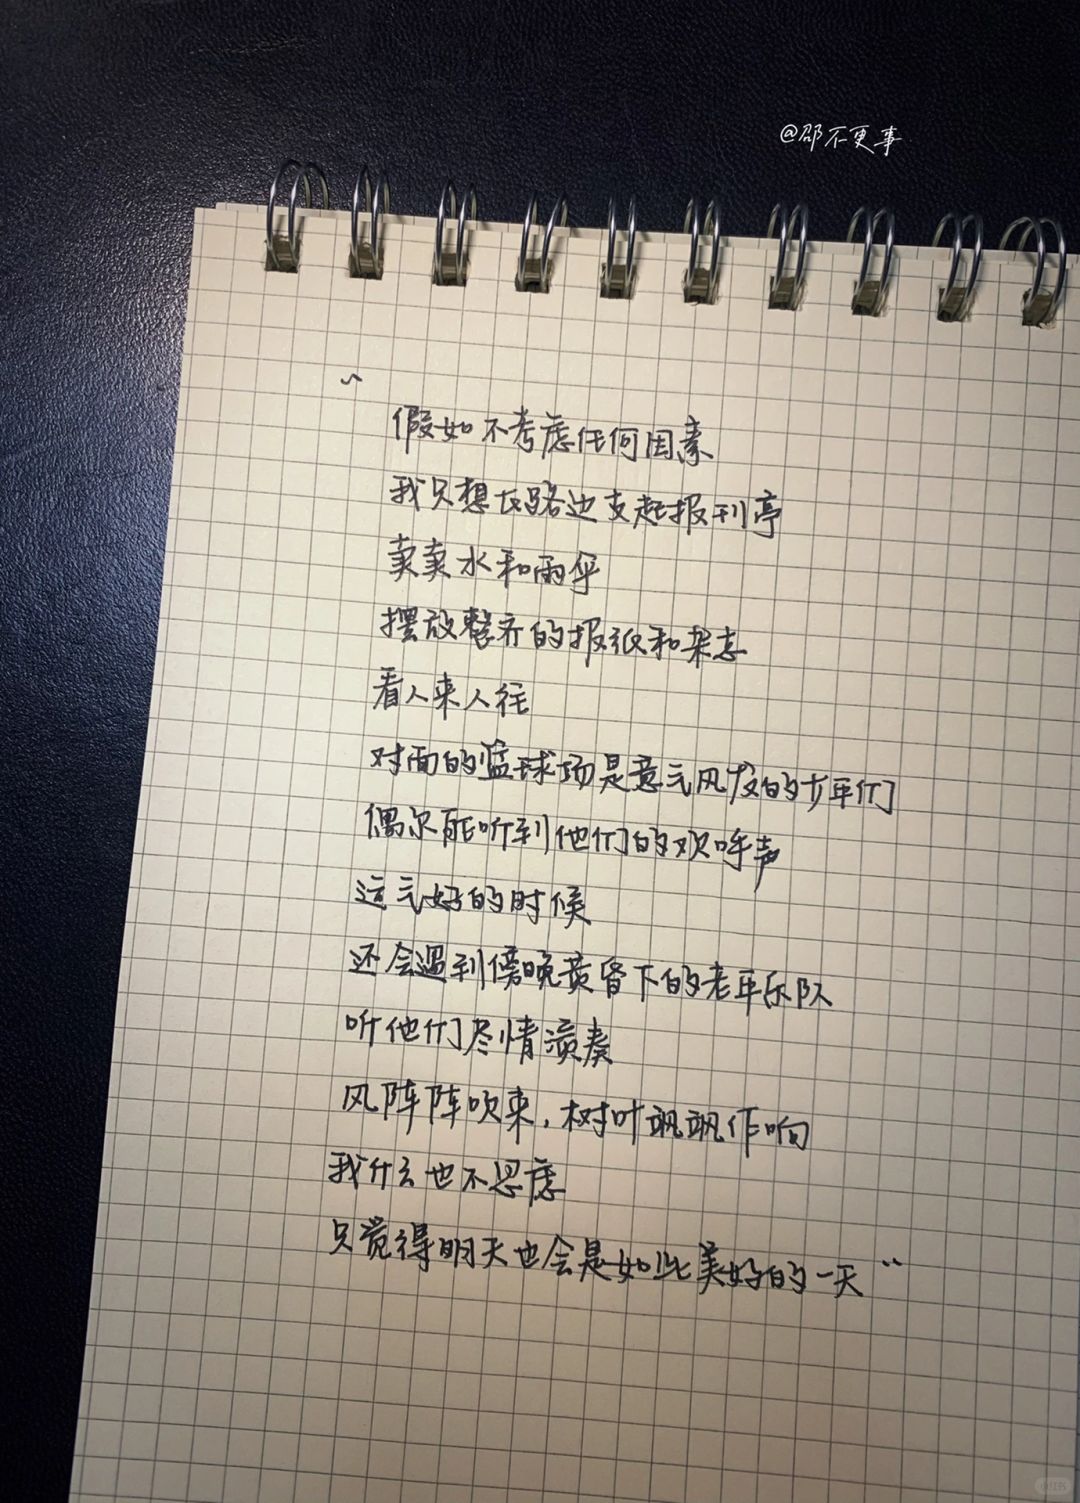 @邵不更事
“假如不考虑任何因素
我只想在路边支起报刊亭
卖卖水和雨伞
摆放整齐的报纸和杂志
看人来人往
对面的篮球场是意气风发的少年们
偶尔能听到他们的欢呼声
运气好的时候
还会遇到傍晚黄昏下的老年乐队
听他们尽情演奏
风阵阵吹来，树叶飒飒作响
我什么也不思虑
只觉得明天也会是如此美好的一天”